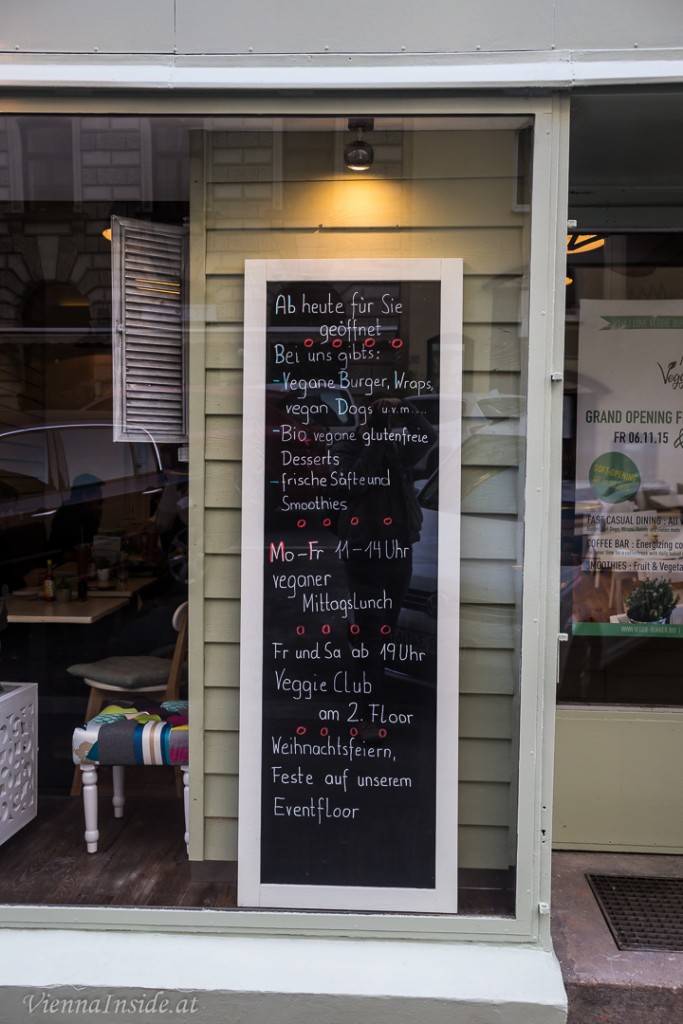 Ab heute für Sie
geöffnet
Bei uns gibts:
-Vegane Burger, Wraps,
vegan Dogs u.v.m....
-Bio vegane glutenfreie
Desserts
-frische Säfte und
Smoothies
Mo-Fr 11-14 Uhr
veganer
Mittagslunch
Fr und Sa ab 19 Uhr
Veggie Club
am 2. Floor
Weihnachtsfeiern,
Feste auf unserem
Eventfloor
GRAND OPENING
FR 06.11.15
&
SOFT-OPENING
FAST CASUAL DINING :
COFFEE BAR : Energizing
SMOOTHIES : Fruit &
ViennaInside.at